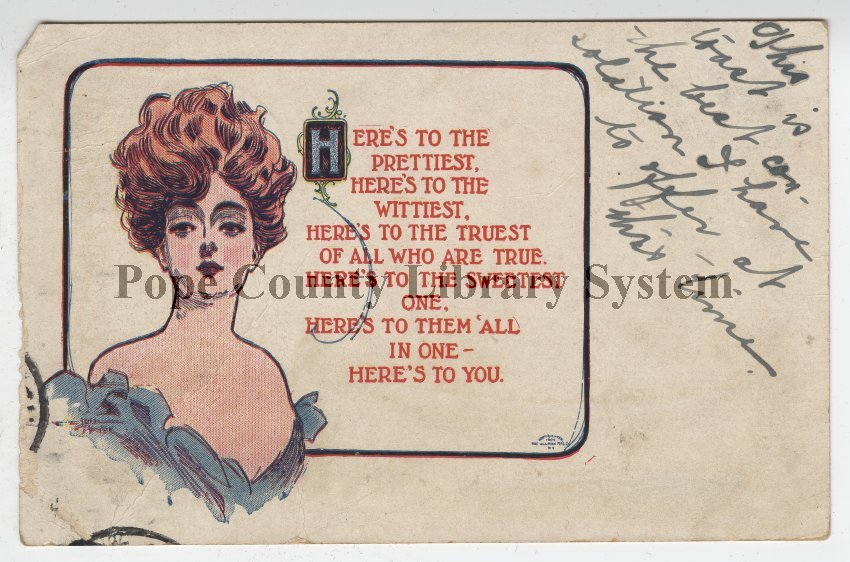 HERE'S TO THE
PRETTIEST,
HERE'S TO THE
WITTIEST,
HERE'S TO THE TRUEST
OF ALL WHO ARE TRUE.
HERE'S TO THE SWEETEST
ONE,
HERE'S TO THEM ALL
IN ONE—
HERE'S TO YOU.
This is
toast is
the best con-
solation I have
to offer at
this time.
Pope County Library System